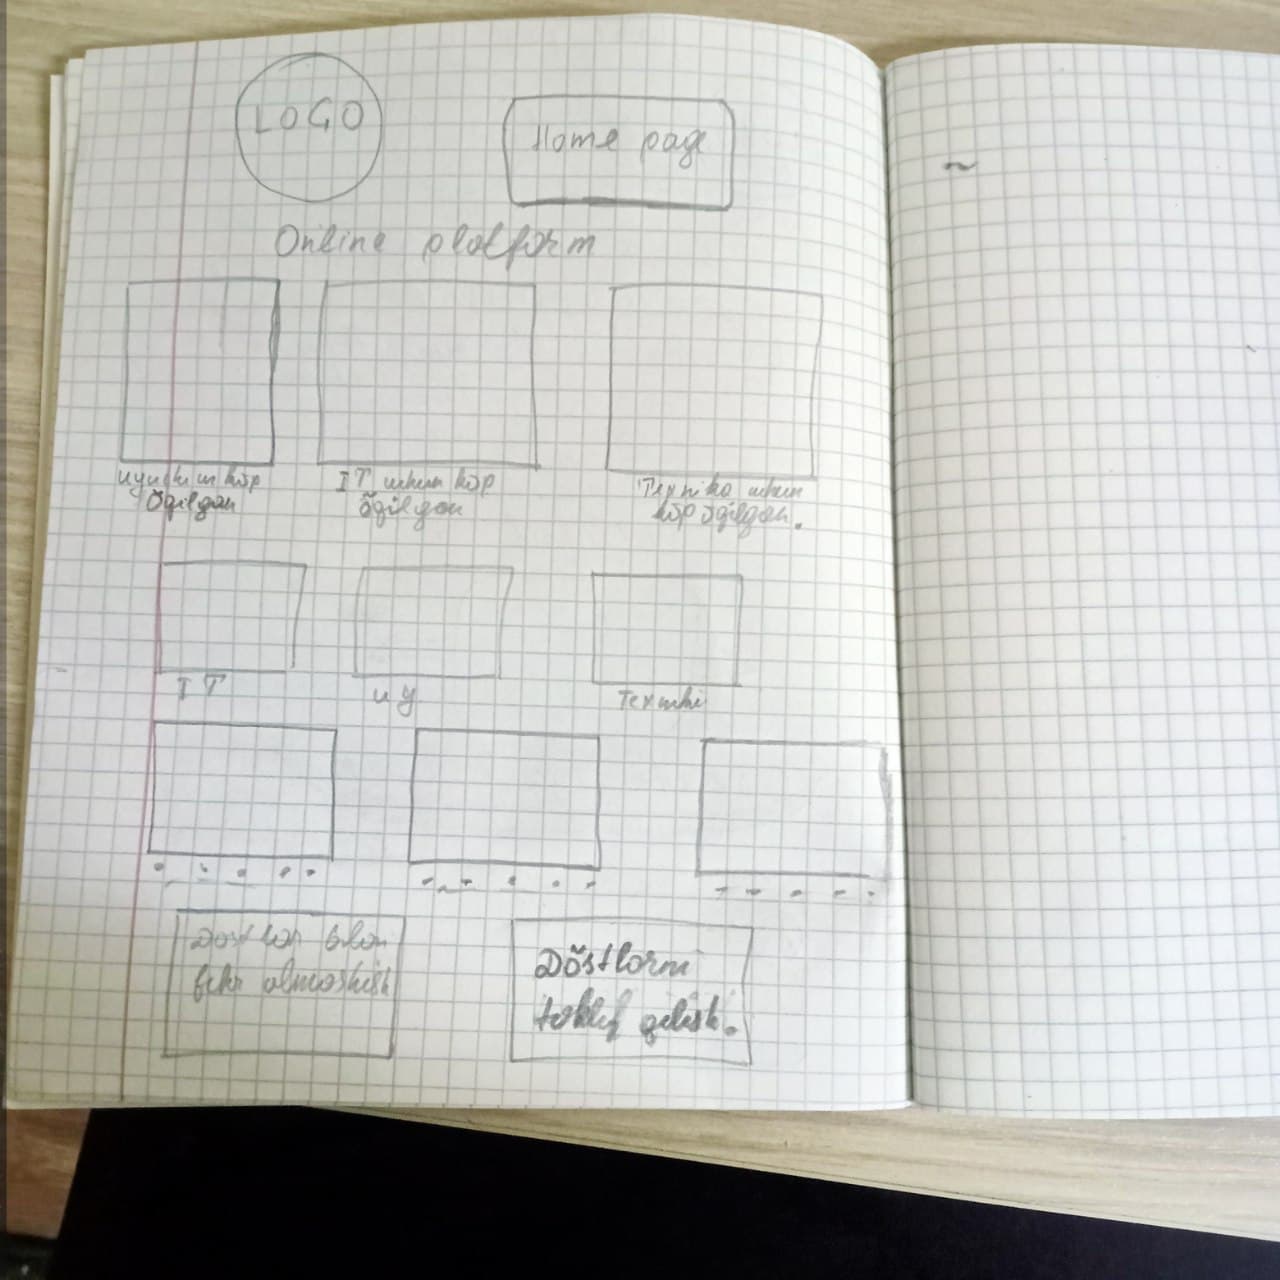 LOGO
Home page
Online platform
uy uchun kŏp
ŏqilgan
IT uchun kŏp
ŏqilgan
Texnika uchun
kŏp ŏqilgan.
IT
uy
Texnika
Dŏstlar bilan
fikr almashish
Dŏstlarni
taklif qilish.